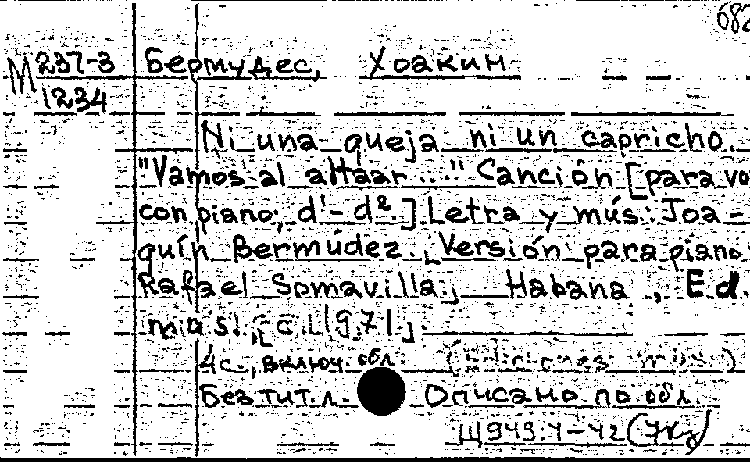 682
М 237-3 Бермудес, Хоакин
1234
Ni una queja ni un capricho.
"Vamos al altaar..." Canción [para vo
con piano; d¹-d².] Letra y mús.: Joa-
quín Bermúdez. Versión para piano
Rafael Somavilla. Habana, Ed.
mus., c. 1971.
4 с., включ. обл.
Без тит. л. Описано по обл.
Щ949.4-42